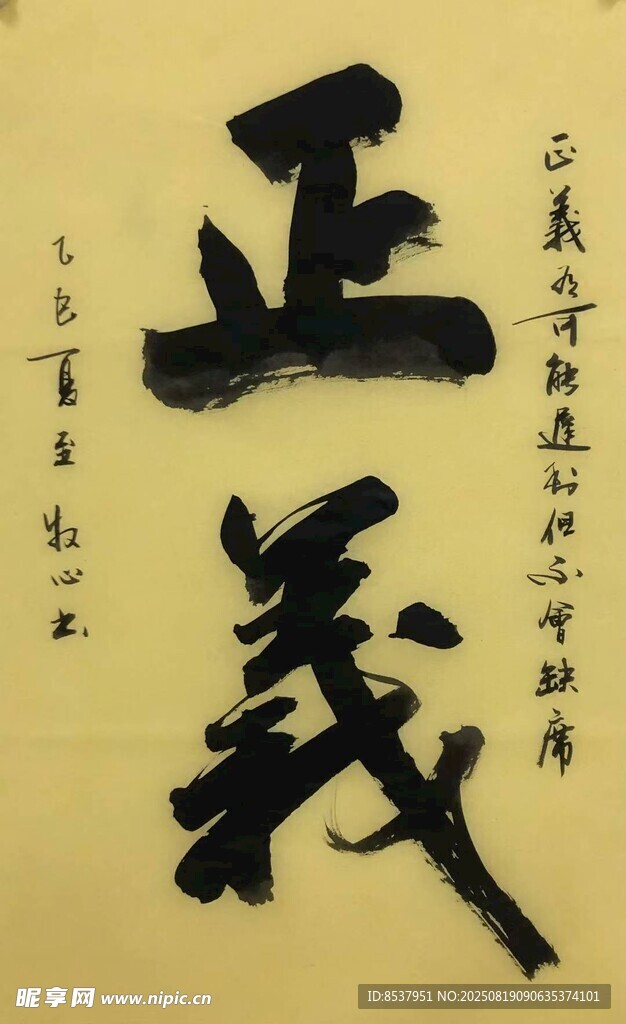 正義有可能遲到但不會缺席
正義
乙巳夏至 牧心书
昵享网 www.nipic.cn
ID:8537951 NO:20250819090635374101